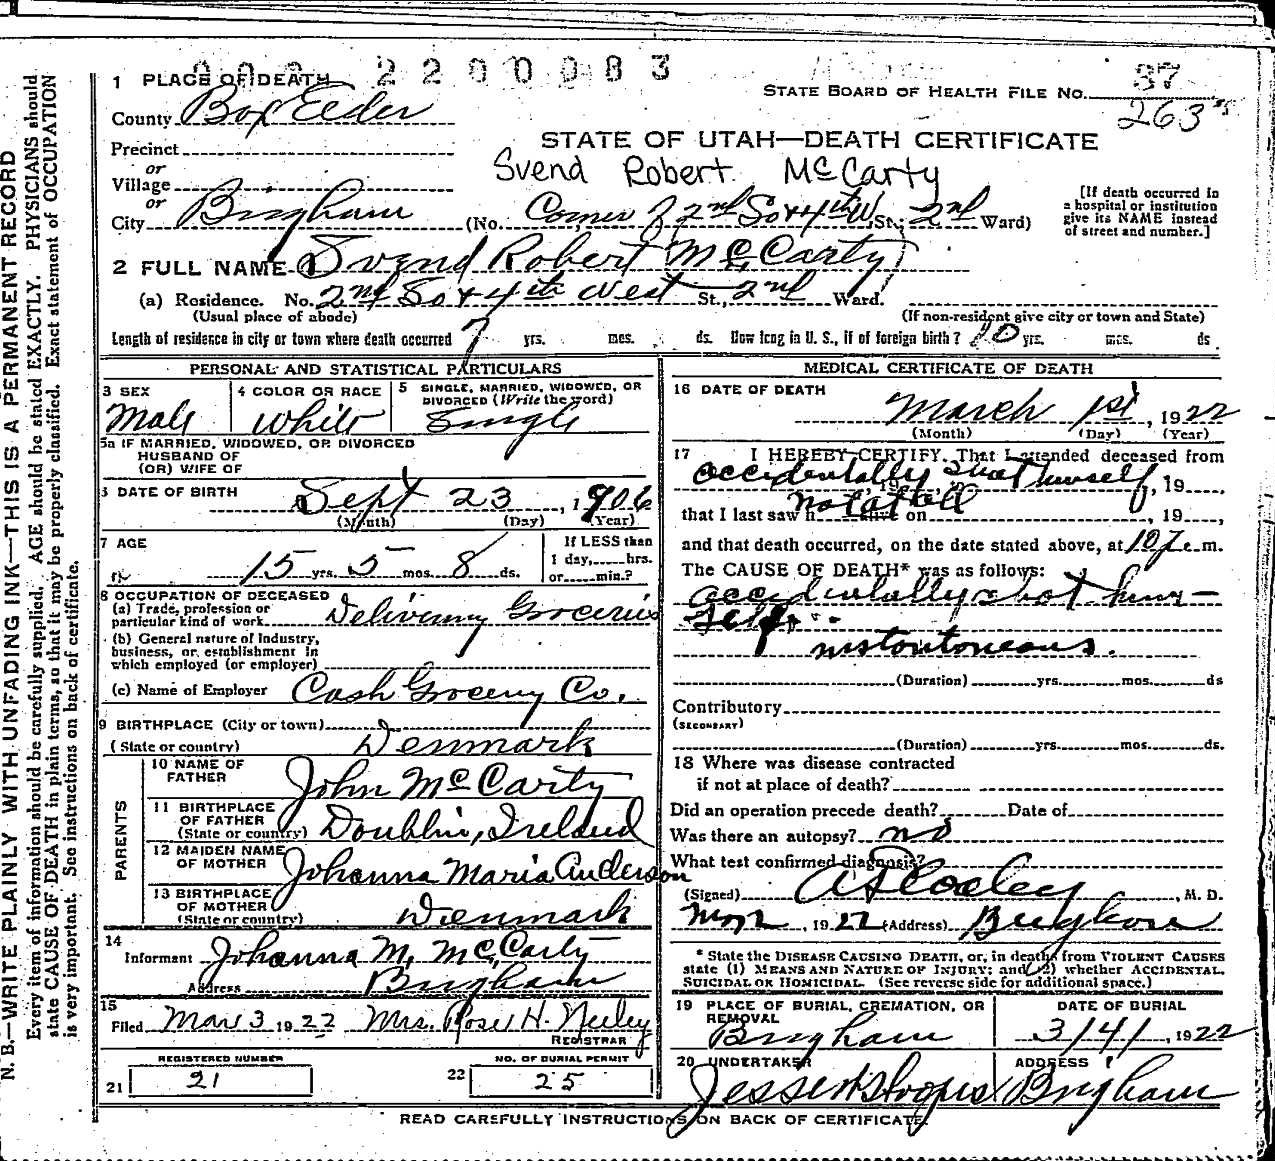 2200083
1 PLACE OF DEATH
STATE BOARD OF HEALTH FILE NO. 37
263
County Box Elder
STATE OF UTAH—DEATH CERTIFICATE
Precinct
Svend Robert McCarty
or
Village
or
City Brigham (No. Corner of 2nd So & 4th W St.; 2nd Ward)
[If death occurred in a hospital or institution give its NAME instead of street and number.]
2 FULL NAME Svend Robert McCarty
(a) Residence. No. 2nd So & 4th West St., 2nd Ward.
(Usual place of abode) (If non-resident give city or town and State)
Length of residence in city or town where death occurred 7 yrs. mos. ds. How long in U. S., if of foreign birth? 10 yrs. mos. ds.
PERSONAL AND STATISTICAL PARTICULARS
3 SEX Male
4 COLOR OR RACE White
5 SINGLE, MARRIED, WIDOWED, OR DIVORCED (Write the word) Single
5a IF MARRIED, WIDOWED, OR DIVORCED
HUSBAND OF
(OR) WIFE OF
DATE OF BIRTH Sept 23, 1906
(Month) (Day) (Year)
7 AGE 15 yrs. 5 mos. 8 ds.
If LESS than
1 day, hrs.
or min.?
8 OCCUPATION OF DECEASED
(a) Trade, profession or
particular kind of work Delivering Groceries
(b) General nature of Industry,
business, or establishment in
which employed (or employer)
(c) Name of Employer Cash Grocery Co.
9 BIRTHPLACE (City or town)
(State or country) Denmark
PARENTS
10 NAME OF FATHER John McCarty
11 BIRTHPLACE OF FATHER
(State or country) Doublin, Ireland
12 MAIDEN NAME OF MOTHER Johanna Maria Anderson
13 BIRTHPLACE OF MOTHER
(State or country) Denmark
14 Informant Johanna M. McCarty
Address Brigham
15 Filed Mar 3 1922 Mrs. Rose H. Neeley
REGISTRAR
REGISTERED NUMBER NO. OF BURIAL PERMIT
21 21 22 25
MEDICAL CERTIFICATE OF DEATH
16 DATE OF DEATH March 1st, 1922
(Month) (Day) (Year)
17 I HEREBY CERTIFY, That I attended deceased from
accidentally shot himself, 19
that I last saw h not at all alive on , 19 ,
and that death occurred, on the date stated above, at 10 m.
The CAUSE OF DEATH* was as follows:
accidentally shot him-
self
instontoneous.
(Duration) yrs. mos. ds
Contributory
(SECONDARY)
(Duration) yrs. mos. ds.
18 Where was disease contracted
if not at place of death?
Did an operation precede death? Date of
Was there an autopsy? no
What test confirmed diagnosis?
(Signed) , M. D.
, 1922 (Address) Brigham
* State the DISEASE CAUSING DEATH, or, in deaths from VIOLENT CAUSES
state (1) MEANS AND NATURE OF INJURY; and (2) whether ACCIDENTAL,
SUICIDAL OR HOMICIDAL. (See reverse side for additional space.)
19 PLACE OF BURIAL, CREMATION, OR REMOVAL Brigham
DATE OF BURIAL 3/4/, 1922
20 UNDERTAKER
ADDRESS Brigham
READ CAREFULLY INSTRUCTIONS ON BACK OF CERTIFICATE.
N. B.—WRITE PLAINLY WITH UNFADING INK—THIS IS A PERMANENT RECORD
Every item of information should be carefully supplied. AGE should be stated EXACTLY. PHYSICIANS should
state CAUSE OF DEATH in plain terms, so that it may be properly classified. Exact statement of OCCUPATION
is very important. See instructions on back of certificate.